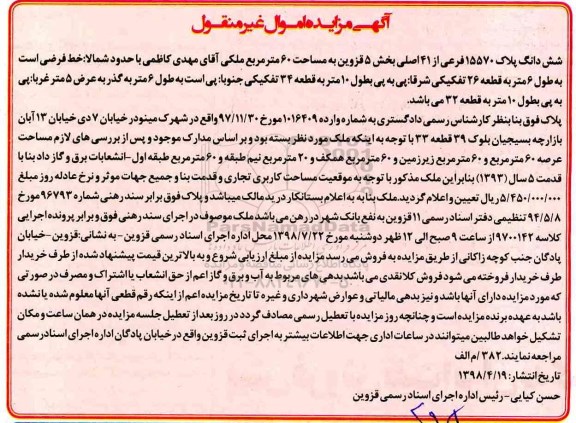 آگهی مزایده اموال غیر منقول
شش دانگ پلاک ۱۵۵۷۰ فرعی از ۴۱ اصلی بخش ۵ قزوین به مساحت ۶۰ متر مربع ملکی آقای مهدی کاظمی با حدود شمالا: خط فرضی است
به طول ۶ متر به قطعه ۲۶ تفکیکی شرقا: پی به پی بطول ۱۰ متر به قطعه ۳۴ تفکیکی جنوبا: پی است به طول ۶ متر به گذر به عرض ۵ متر غربا: پی
به پی بطول ۱۰ متر به قطعه ۳۲ می باشد.
پلاک فوق بنا بنظر کارشناس رسمی دادگستری به شماره وارده ۱۰۱۶۴۰۹ مورخ ۹۷/۱۱/۳۰ واقع در شهرک مینودر خیابان ۷ دی خیابان ۱۳ آبان
بازارچه بسیجیان بلوک ۳۹ قطعه ۳۳ با توجه به اینکه ملک مورد نظر بسته بود و بر اساس مدارک موجود و پس از بررسی های لازم مساحت
عرصه ۶۰ متر مربع و ۶۰ متر مربع زیرزمین و ۶۰ متر مربع همکف و ۲۰ متر مربع نیم طبقه و ۶۰ متر مربع طبقه اول - انشعابات برق و گاز داد بنا با
قدمت ۵ سال (۱۳۹۳) بنابراین ملک مذکور با توجه به موقعیت مساحت کاربری تجاری و قدمت بنا و جمیع جهات موثر و نرخ عادله روز مبلغ
۵/۴۵۰/۰۰۰/۰۰۰ ریال تعیین و اعلام گردید. ملک بنا به به اعلام بستانکار در ید مالک میباشد و پلاک فوق برابر سند رهنی شماره ۹۶۷۹۳ مورخ
۹۴/۵/۸ تنظیمی دفتر اسناد رسمی ۱۱ قزوین به نفع بانک شهر در رهن می باشد ملک موصوف در اجرای سند رهنی فوق و برابر پرونده اجرایی
کلاسه ۹۷۰۰۱۴۲ از ساعت ۹ صبح الی ۱۲ ظهر دوشنبه مورخ ۱۳۹۸/۷/۲۲ محل اداره اجرای اسناد رسمی قزوین - به نشانی: قزوین - خیابان
پادگان جنب کوچه زاکانی از طریق مزایده به فروش می رسد مزایده از مبلغ ارزیابی شروع و به بالاترین قیمت پیشنهاد شده از طرف خریدار
طرف خریدار فروخته می شود فروش کلا نقدی می باشد بدهی های مربوط به آب و برق و گاز اعم از حق انشعاب یا اشتراک و مصرف در صورتی
که مورد مزایده دارای آنها باشد و نیز بدهی مالیاتی و عوارض شهرداری و غیره تا تاریخ مزایده اعم از اینکه رقم قطعی آنها معلوم شده یا نشده
باشد به عهده برنده مزایده است و چنانچه روز مزایده با تعطیل رسمی مصادف گردد در روز بعد از تعطیل جلسه مزایده در همان ساعت و مکان
تشکیل خواهد طالبین میتوانند در ساعات اداری جهت اطلاعات بیشتر به اجرای ثبت قزوین واقع در خیابان پادگان اداره اجرای اسناد رسمی
مراجعه نمایند. ۳۸۲ / م الف
تاریخ انتشار: ۱۳۹۸/۴/۱۹
حسن کیایی - رئیس اداره اجرای اسناد رسمی قزوین